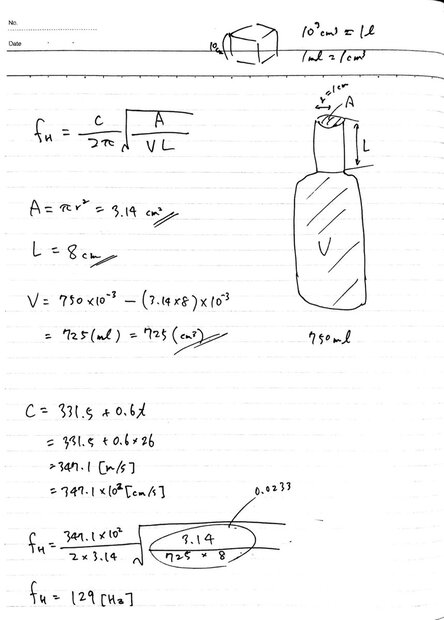 No.
Date
10cm
10³cm³ = 1l
1ml = 1cm³
r=1cm
A
L
V
750ml
f_H = C/2π √(A/VL)
A = πr² = 3.14 cm²
L = 8cm
V = 750×10⁻³ − (3.14×8)×10⁻³
= 725(ml) = 725(cm³)
C = 331.5 + 0.6t
= 331.5 + 0.6×26
=347.1 [m/s]
=347.1×10²[cm/s]
0.0233
f_H = 347.1×10²/2×3.14 √(3.14/725×8)
f_H = 129[Hz]